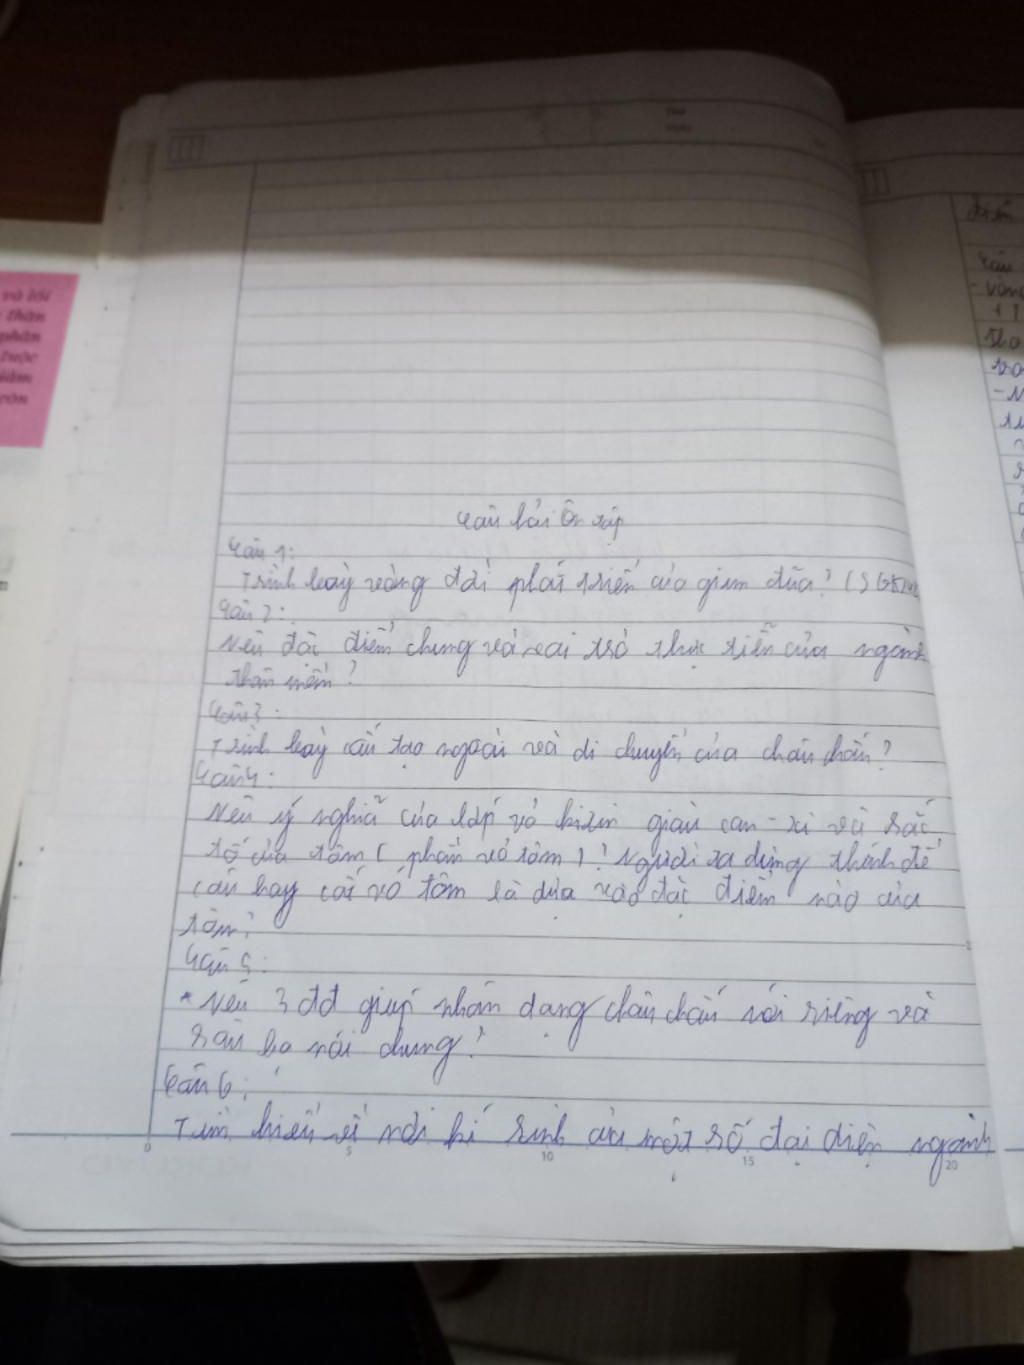 Câu hỏi ôn tập
Câu 1:
Trình bày vòng đời phát triển của giun đũa? (SGK
Câu 2:
Nêu đặc điểm chung và vai trò thực tiễn của ngành
thân mềm?
Câu 3:
Trình bày cấu tạo ngoài và di chuyển của châu chấu?
Câu 4:
Nêu ý nghĩa của lớp vỏ kitin giàu can-xi và sắc
tố của tôm (phần vỏ tôm)? Người ta dùng thính để
câu hay cất vó tôm là dựa vào đặc điểm nào của
tôm?
Câu 5:
* Nêu 3 đđ giúp nhận dạng châu chấu nói riêng và
sâu bọ nói chung?
Câu 6:
Tìm hiểu về nơi kí sinh của một số đại diện ngành